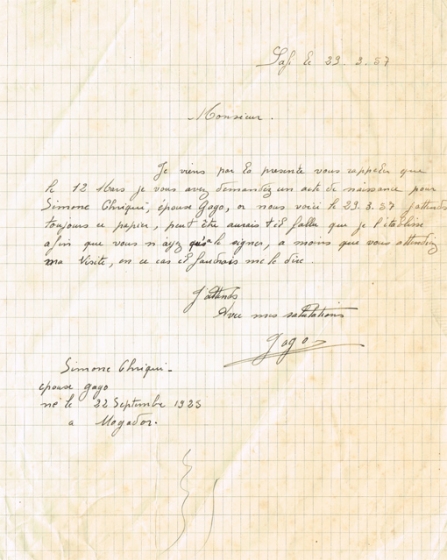 Safi le 23.3.57
Monsieur.
Je viens par la presente vous rappeler que
le 12 Mars je vous avez demandez un acte de naissance pour
Simone Chriqui, épouse Gogo, or nous voici le 23.3.57 j'attends
toujours ce papier, peut être aurait t il fallu que je l'établisse
afin que vous n'ayez qu'à le signer, a moins que vous attendiez
ma visite, en ce cas il faudrais me le dire.
J'attends
Avec mes salutations
Gogo
Simone Chriqui-
epouse gogo
né le 22 Septembre 1925
a Mogador.